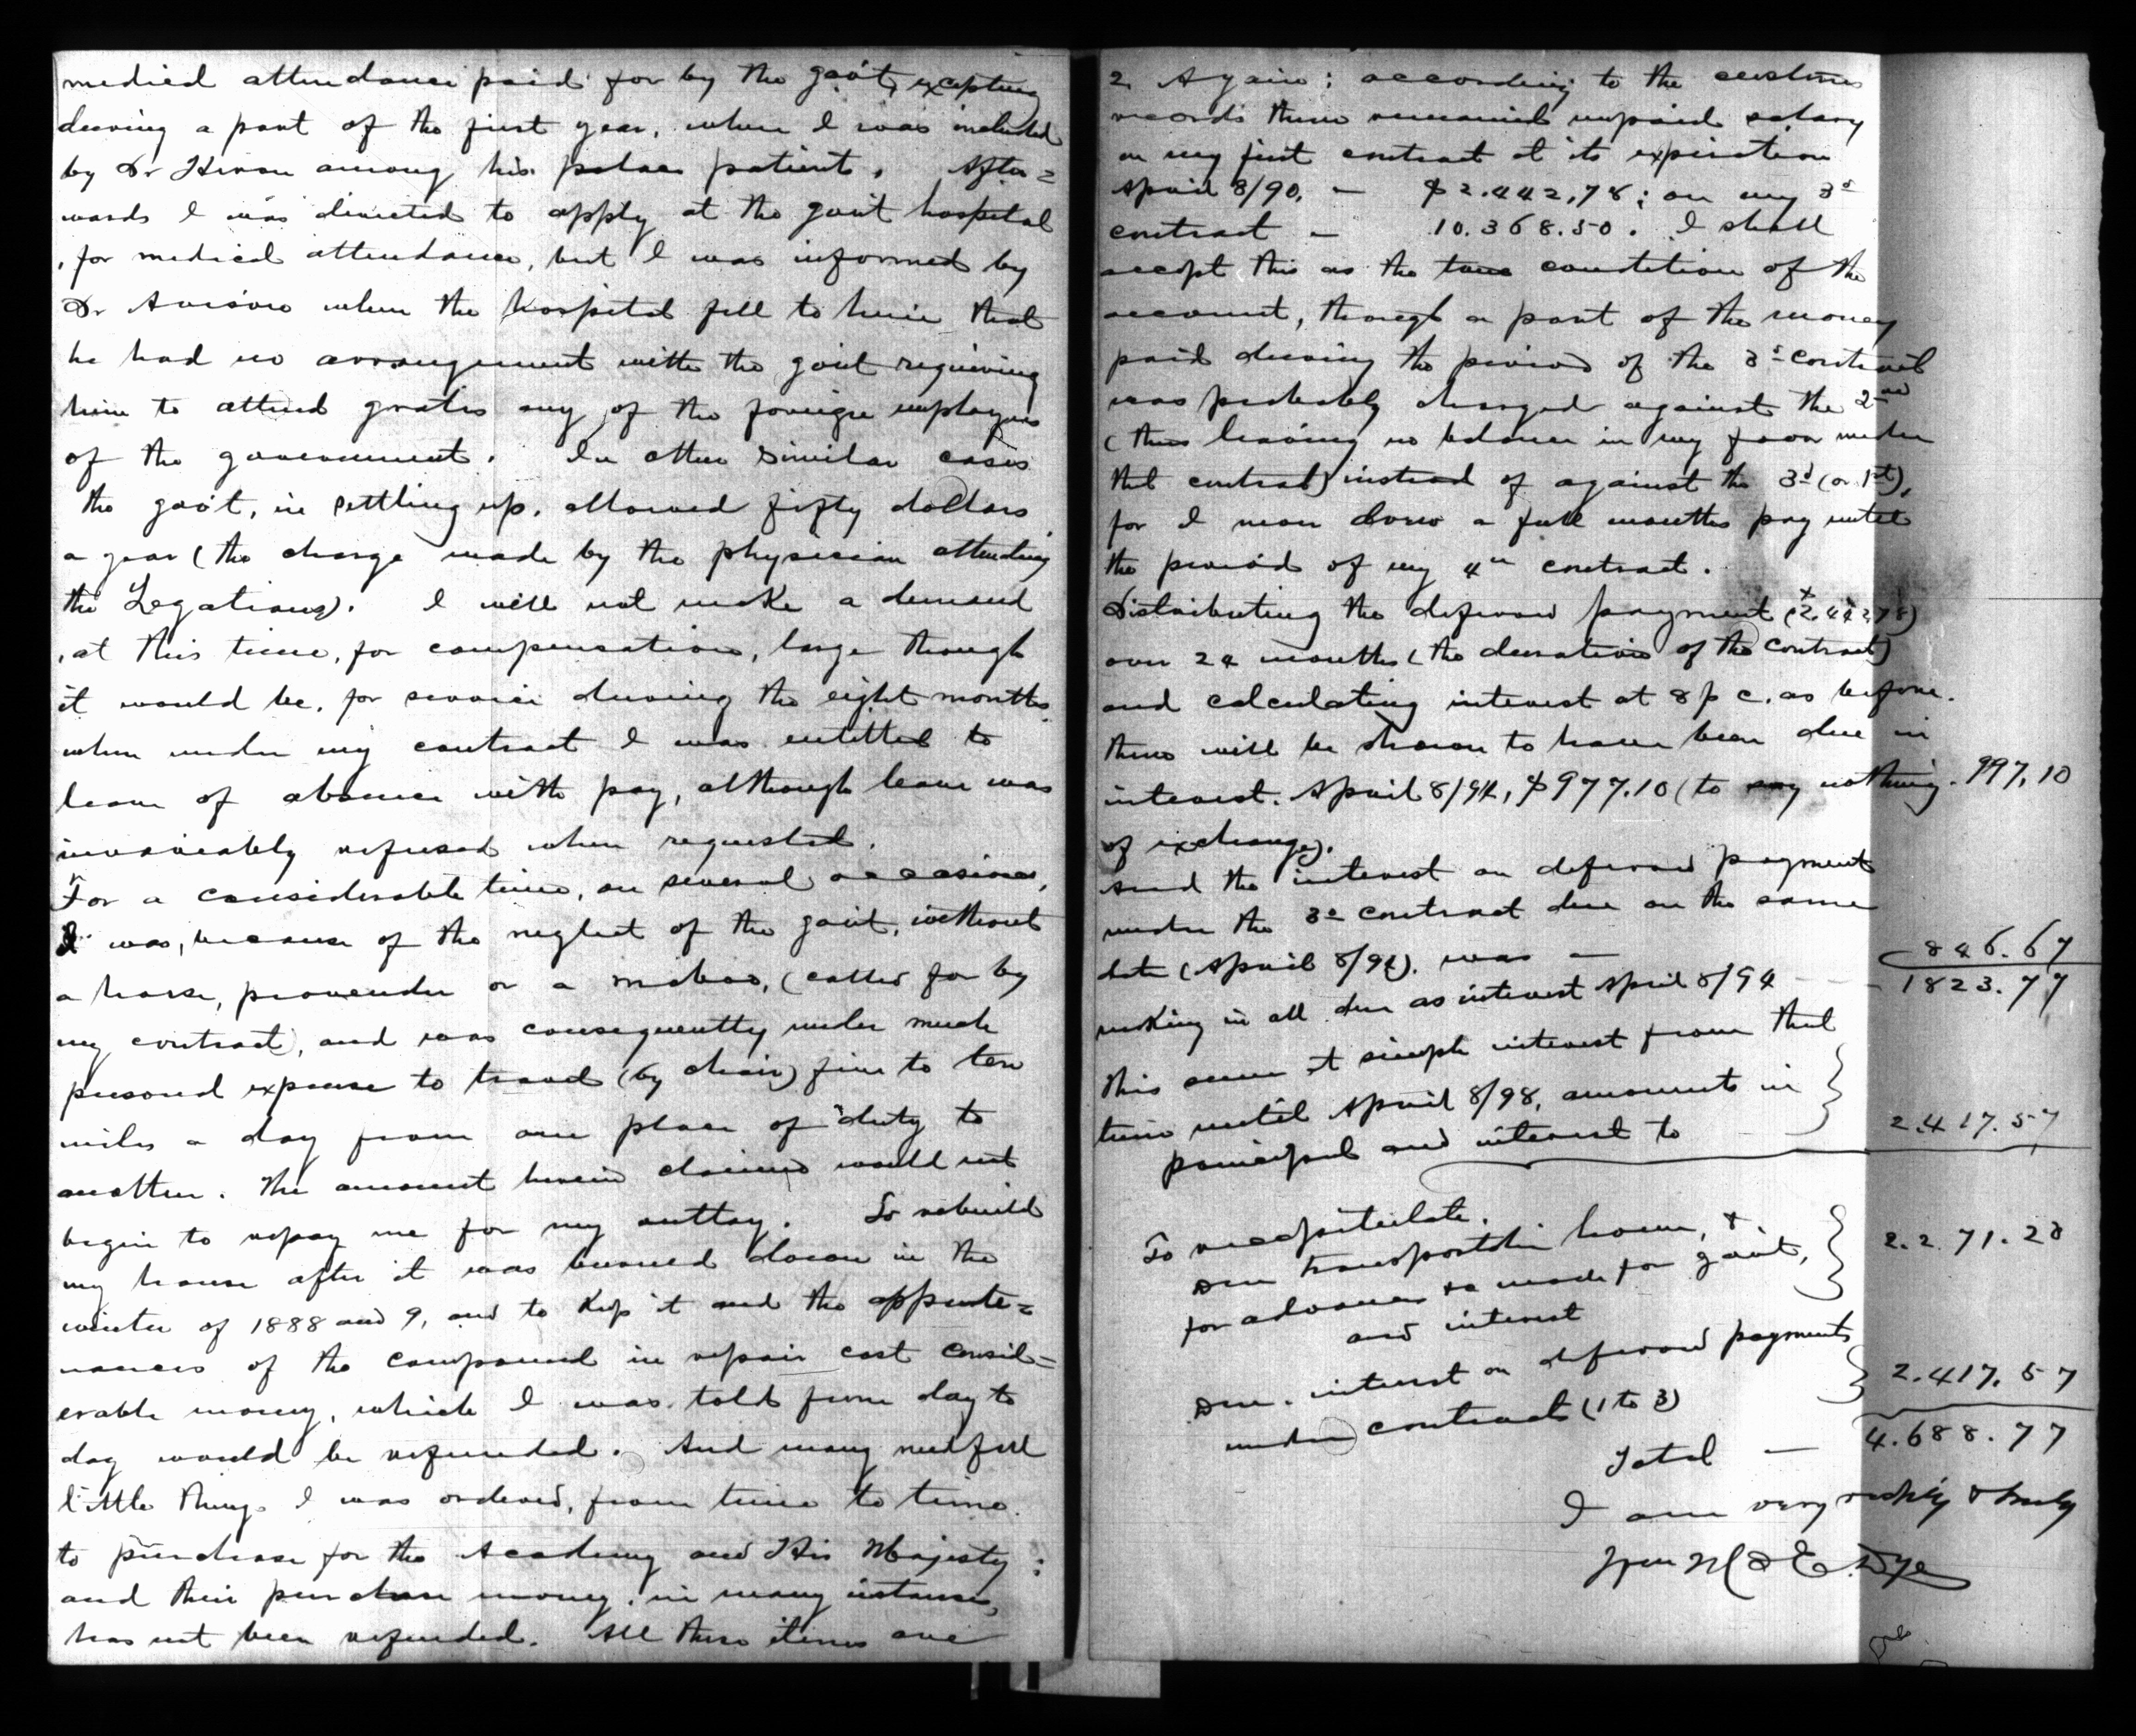 medical attendance paid for by the gov't, excepting
during a part of the first year, when I was included
by Dr Heron among his palace patients. After=
wards I was directed to apply at the gov't hospital
for medical attendance, but I was informed by
Dr Avison when the hospital fell to him that
he had no arrangement with the gov't requiring
him to attend gratis any of the foreign employees
of the government. In other similar cases
the gov't, in settling up, allowed fifty dollars
a year (the charge made by the physician attending
the Legations). I will not make a demand
at this time, for compensation, large though
it would be, for service during the eight months
when under my contract I was entitled to
leave of absence with pay, although leave was
invariably refused when requested.
For a considerable time, on several occasions,
I was, because of the neglect of the gov't, without
a horse, provender or a maboo, (called for by
my contract), and was consequently under much
personal expense to travel (by chair) five to ten
miles a day from one place of duty to
another. The amount herein claimed would not
begin to repay me for my outlay. To rebuild
my house after it was burned down in the
winter of 1888 and 9, and to keep it and the appurte=
nances of the compound in repair cost consid=
erable money, which I was told from day to
day would be refunded. And many needful
little things I was ordered, from time to time
to purchase for the Academy and His Majesty;
and their purchase money, in many instances,
has not been refunded. All these items are
2 Again; according to the customs
records there remained unpaid salary
on my first contract at its expiration
April 8/90. — $2.442,78; on my 3d
contract — 10.368.50. I shall
accept this as the true condition of the
account, though a part of the money
paid during the period of the 3d contract
was probably charged against the 2nd
(thus leaving no balance in my favor under
that contract) instead of against the 3d (or 1st),
for I never drew a full months pay until
the period of my 4th contract.
Distributing the deferred payment ($2.442.78)
over 24 months (the duration of the contract)
and calculating interest at 8 p c. as before.
there will be shown to have been due in
interest. April 8/94, $977.10 (to say nothing. 997,10
of exchange).
And the interest on deferred payments
under the 3d contract due on the same
date (April 8/94). was — 846.67
making in all due as interest April 8/94 — 1823.77
This sum at simple interest from that
time until April 8/98, amounts in
principal and interest to 2.417.57
To recapitulate.
Due transportatin home, &.
for advances &c made for gov't, 2.271.20
and interest
Due. interest on deferred payments
under contracts (1 to 3) 2.417.57
Total — 4.688.77
I am very respfly & truly
Wm McE. Dye